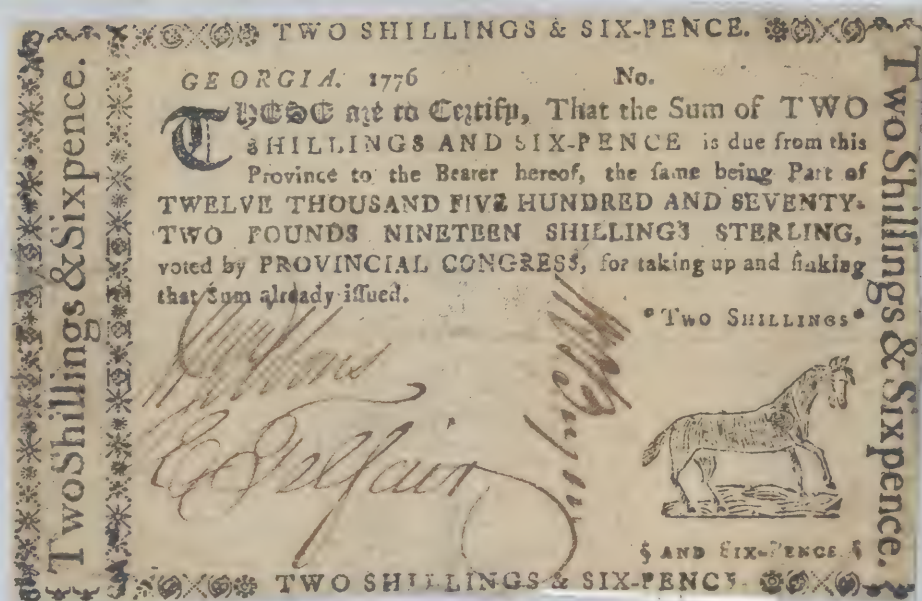 TWO SHILLINGS & SIX-PENCE.
Two Shillings & Sixpence.
GEORGIA. 1776 No.
THESE are to Certify, That the Sum of TWO
SHILLINGS AND SIX-PENCE is due from this
Province to the Bearer hereof, the ſame being Part of
TWELVE THOUSAND FIVE HUNDRED AND SEVENTY-
TWO POUNDS NINETEEN SHILLINGS STERLING,
voted by PROVINCIAL CONGRESS, for taking up and ſinking
that Sum already iſſued.
*TWO SHILLINGS*
E Telfair
§ AND SIX-PENCE. §
Two Shillings & Sixpence.
TWO SHILLINGS & SIX-PENCE.